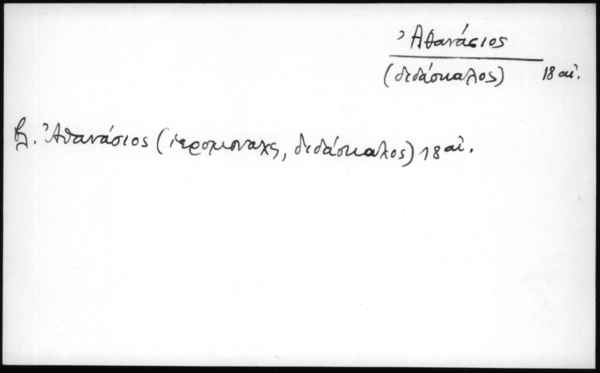 Ἀθανάσιος
(διδάσκαλος) 18 αἰ.
βλ. Ἀθανάσιος (ἱερομόναχς, διδάσκαλος) 18 αἰ.